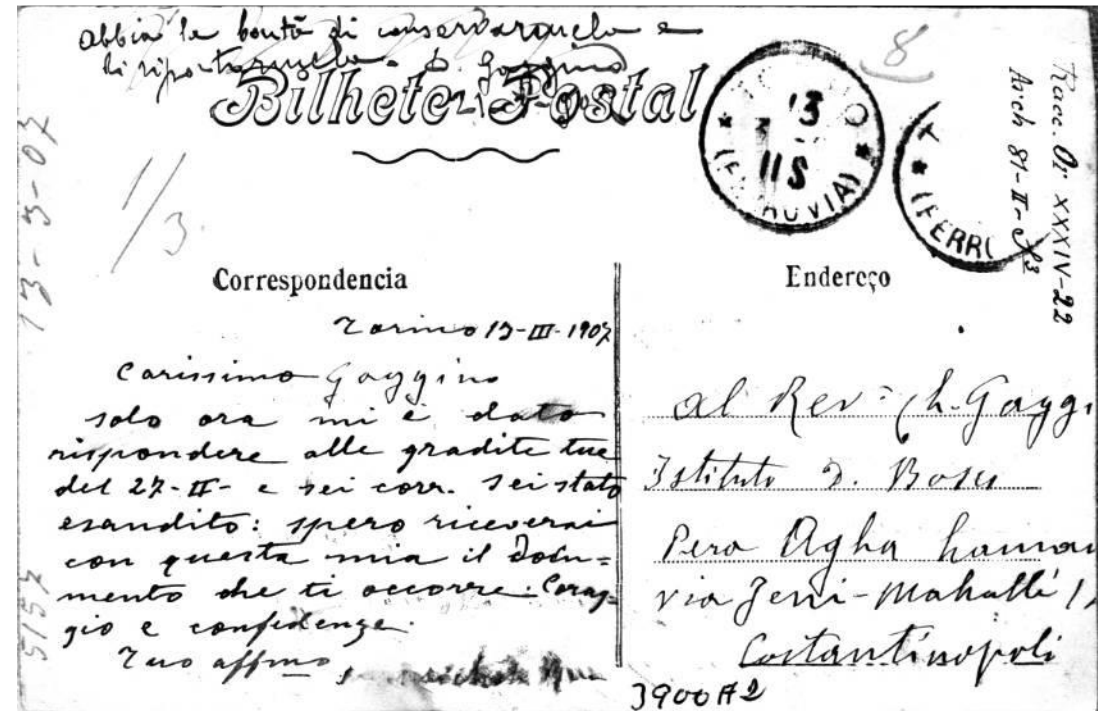 abbia la bontà di conservarmela e
di riportarmela. D. Gaggino
Bilhete Postal
8
13
11 S
(FERROVIA)
(FERR
Racc. Or XXXIV-22
Arch 81-II-
13-3-07
11/3
5157
Correspondencia
Torino 13-III-1907
Carissimo Gaggino
solo ora mi è dato
rispondere alle gradite tue
del 27-II- e sei corr. Sei stato
esaudito: spero riceverai
con questa mia il docu=
mento che ti occorre. Corag-
gio e confidenza.
Tuo affmo
Endereço
Al Rev. Ch. Gaggi
Istituto D. Bosco
Pera Agha hamam
via Jeni-Mahallé 1
Costantinopoli
3900A2